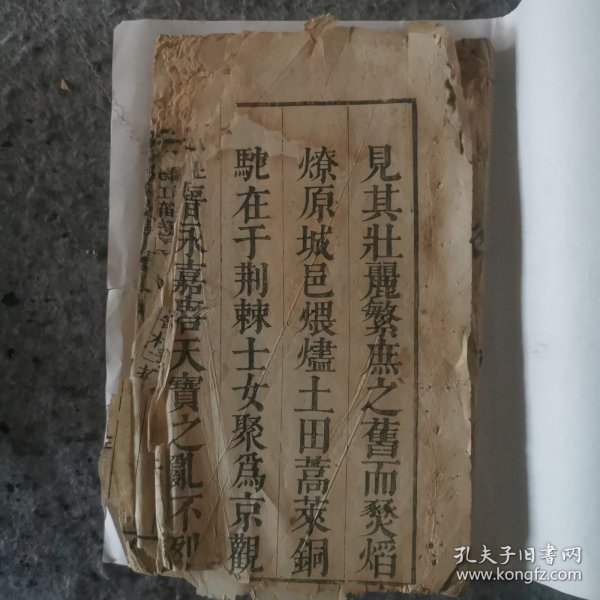 見其壯麗繁庶之舊而焚焰
燎原城邑煨燼土田蒿萊銅
駝在于荆棘士女聚爲京觀
晉永嘉唐天寶之亂不烈
孔夫子旧书网
www.kongfz.com